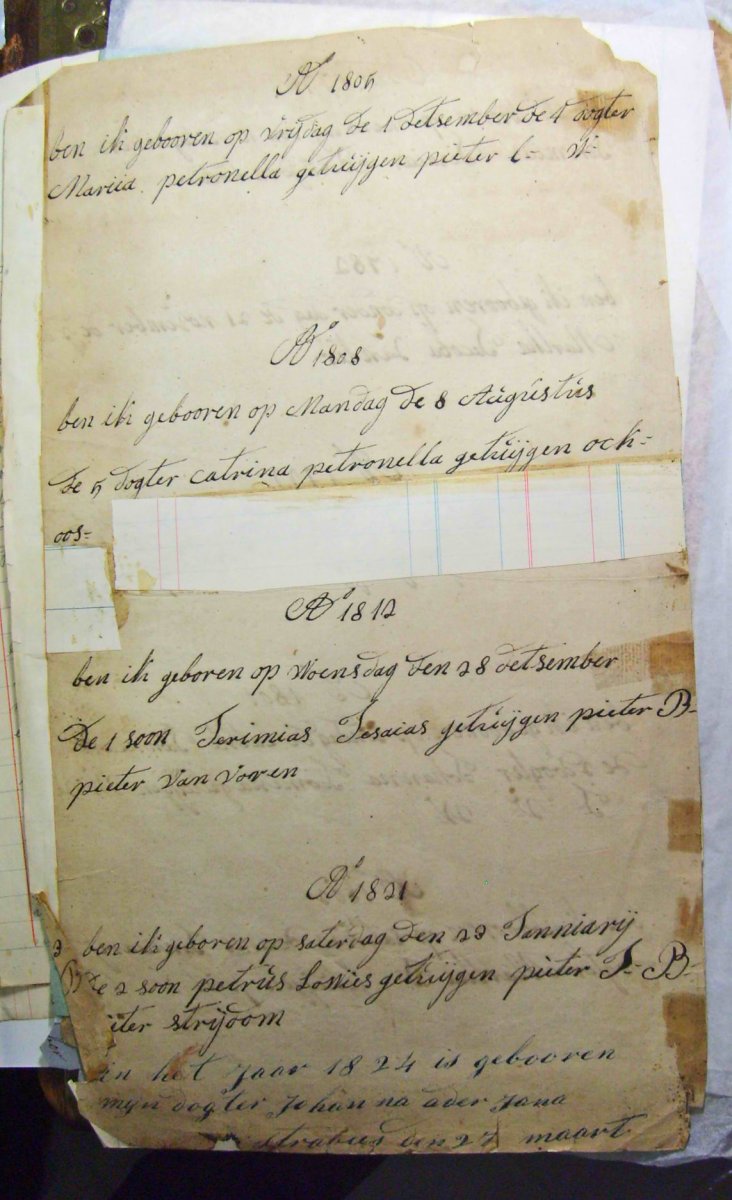 Aº 1805
ben ik gebooren op vrijdag de 1 detsember de 4 dogter
Mariia petronella getuijgen pieter
Aº 1808
ben ik gebooren op Mandag de 8 Augústús
de 5 dogter Catrina petronella getuijgen ock=
oos=
Aº 1812
ben ik geboren op Woensdag den 28 detsember
De 1 soon Jerimias Jesaias getuijgen pieter B-
pieter van voren
Aº 1821
ben ik geboren op saterdag den 23 Janniarij
de 2 soon petrús Loúúes getuijgen pieter J- B-
iter strijdom
in het Jaar 1824 is gebooren
myn dogter Johanna
den 27 maart